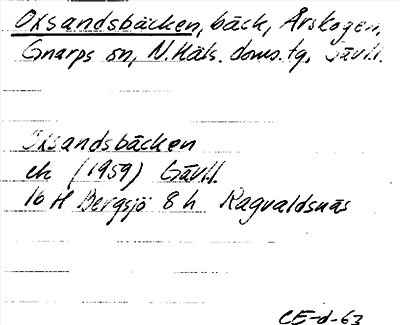 Oxsandsbäcken, bäck, Årskogen,
Gnarps sn, N. Häls. doms.tg, Gävl.
Oxsandsbäcken
ek (1959) Gävl.
16 H Bergsjö 8 h Ragvaldsnäs
CE-d-63